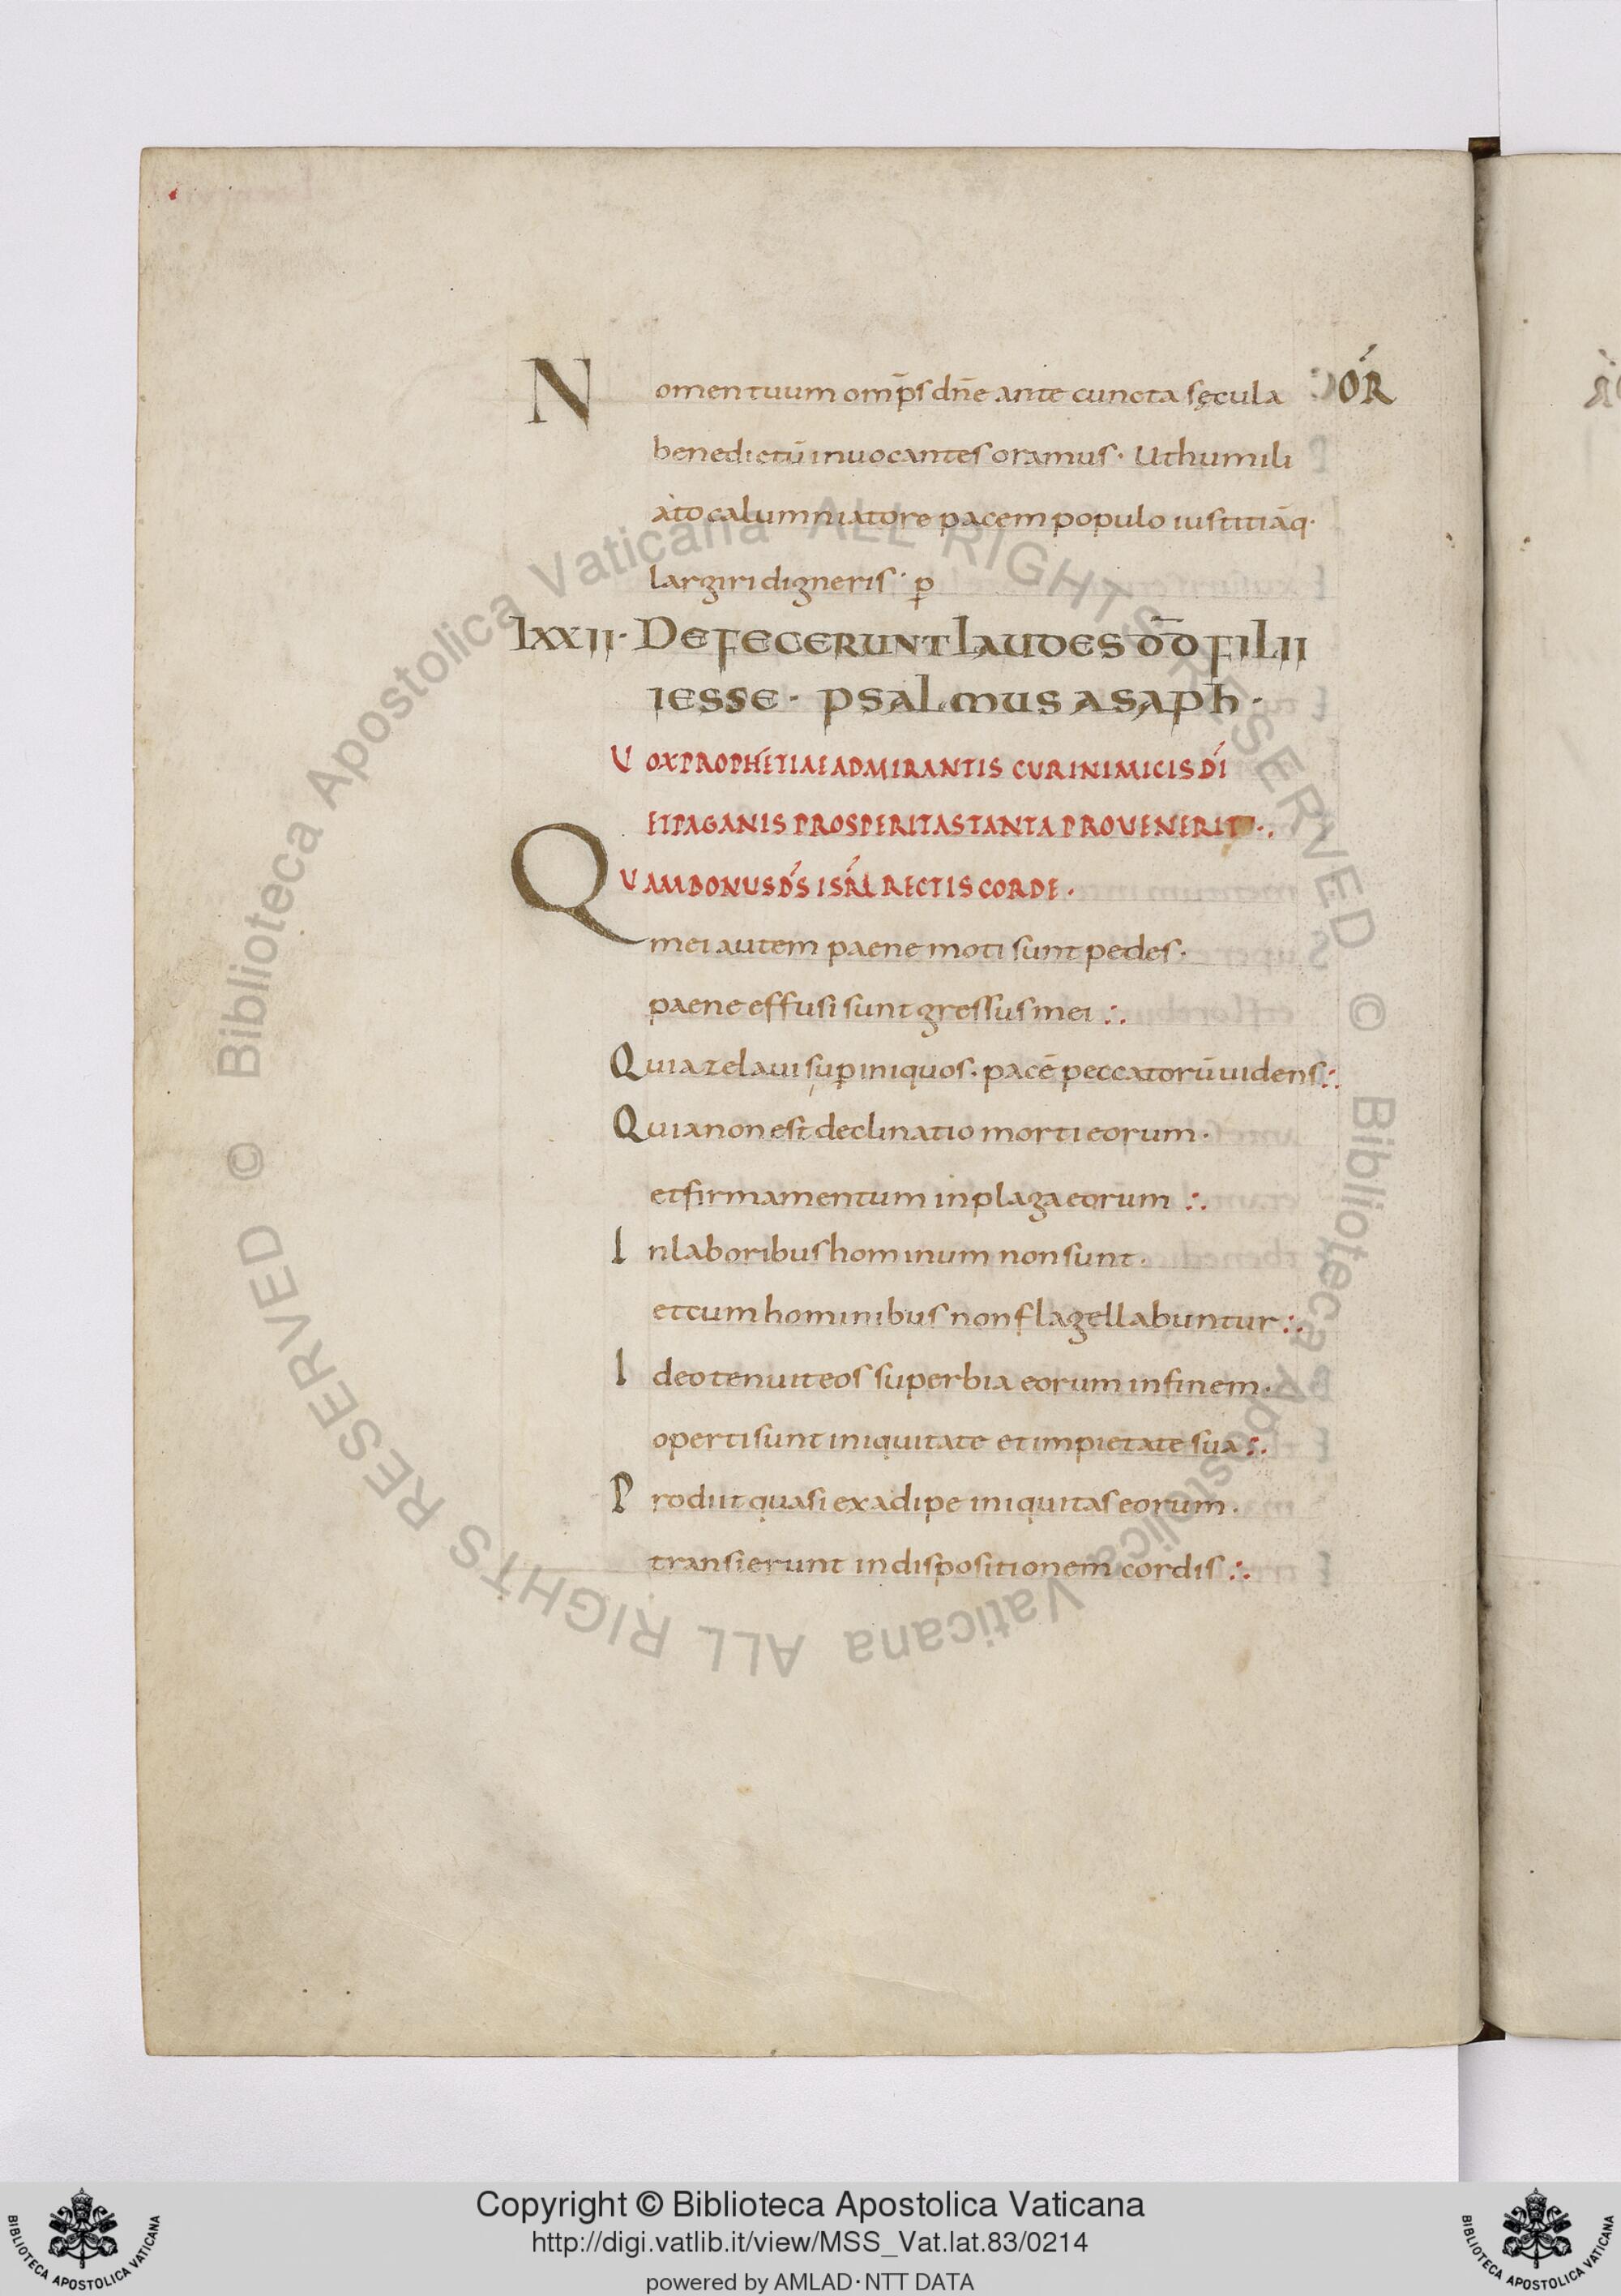 Nomen tuum omp̄s dn̄e ante cuncta sęcula OR
benedictū inuocantes oramus · Ut humili
ato calumniatore pacem populo iustitiāq·
largiri digneris · p̄
lxxii · DEFECERUNT LAUDES DD̄ FILII
IESSE · PSALMUS ASAPH ·
VOX PROPHETIAE ADMIRANTIS CUR INIMICIS DI
ET PAGANIS PROSPERITAS TANTA PROVENERIT ·.
QVAM BONUS DS ISRL RECTIS CORDE ·
mei autem paene moti sunt pedes ·
paene effusi sunt gressus mei :.
Quia zelaui sup iniquos · pacē peccatorū uidens :.
Quia non est declinatio morti eorum ·
et firmamentum in plaga eorum :.
In laboribus hominum non sunt ·
et cum hominibus non flagellabuntur :.
Ideo tenuit eos superbia eorum in finem ·
operti sunt iniquitate et impietate sua :.
Prodiit quasi ex adipe iniquitas eorum ·
transierunt in dispositionem cordis :.
© Biblioteca Apostolica Vaticana ALL RIGHTS RESERVED
© Biblioteca Apostolica Vaticana ALL RIGHTS RESERVED
Copyright © Biblioteca Apostolica Vaticana
http://digi.vatlib.it/view/MSS_Vat.lat.83/0214
powered by AMLAD·NTT DATA
BIBLIOTECA APOSTOLICA VATICANA
BIBLIOTECA APOSTOLICA VATICANA